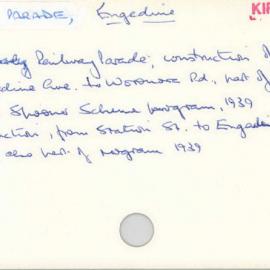 PARADE, Engadine KIR
Railway Parade; construction
dine Ave. to Woronora Rd., part of
Spooner Scheme program, 1939
ction, from Station St. to Engadin
also part of program 1939